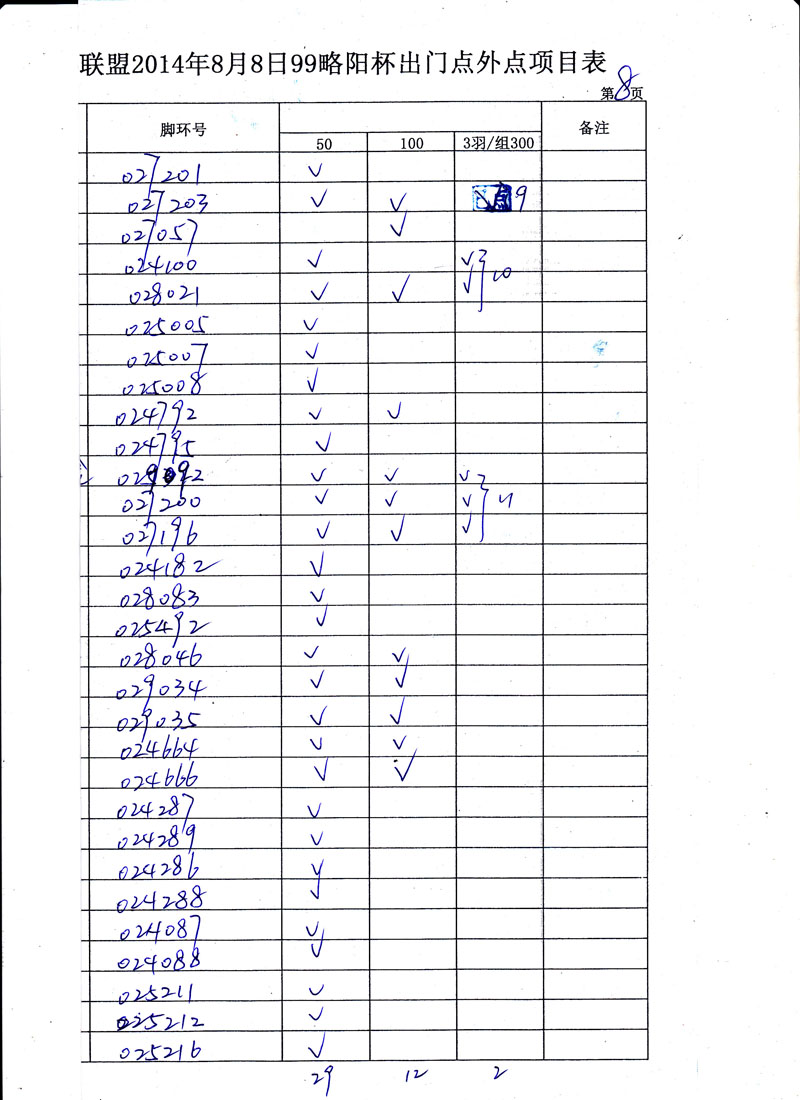 联盟2014年8月8日99略阳杯出门点外点项目表
第8页
脚环号 备注
50 100 3羽/组300
027201 √
027203 √ √ 9
027057 √
024100 √ √
028021 √ √ √ 10
025005 √
025007 √
025008 √
024792 √ √
024795 √
√ √ √
027200 √ √ √ 11
027196 √ √ √
024182 √
028083 √
025492 √
028046 √ √
029034 √ √
029035 √ √
024664 √ √
024666 √ √
024287 √
024289 √
024286 √
024288 √
024087 √
024088 √
025211 √
025212 √
025216 √
29 12 2